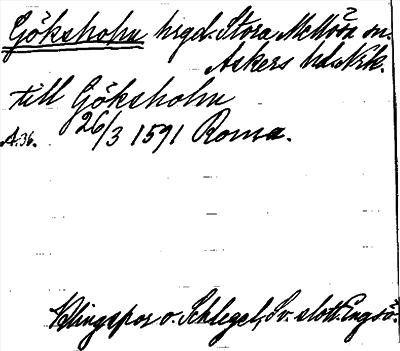 Göksholm hrgd. Stora Mellösa sn.
Askers hd. Nrk.
till Göksholm
A.36. 26/3 1591 Roma.
Klingspor o. Schlegel, Sv. slott. Engsö.